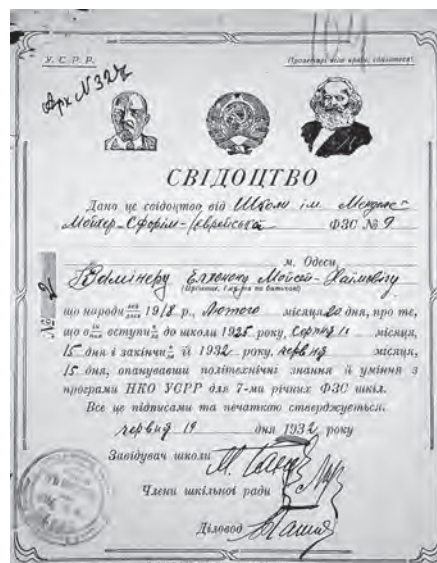 У. С. Р. Р.
Пролетарі всіх країн, єднайтеся!
Арх N 322
СВІДОЦТВО
Дано це свідоцтво від Школи ім. Менделе
Мойхер-Сфорім-Єврейська ФЗС № 9
м. Одеси,
Елхонону Мойсей-Хаімовічу
(Прізвище, ім'я та по батькові)
№ 2
що народи 1918 р., Лютого місяця 20 дня, про те,
що в вступи до школи 1925 року, Серпня місяця,
15 дня і закінчи її 1932 року, червня місяця,
15 дня, опанувавши політехнічні знання й уміння з
програми НКО УСРР для 7-ми річних ФЗС шкіл.
Все це підписами та печаткою стверджується.
червня 19 дня 1932 року
Завідувач школи
Члени шкільної ради
Діловод